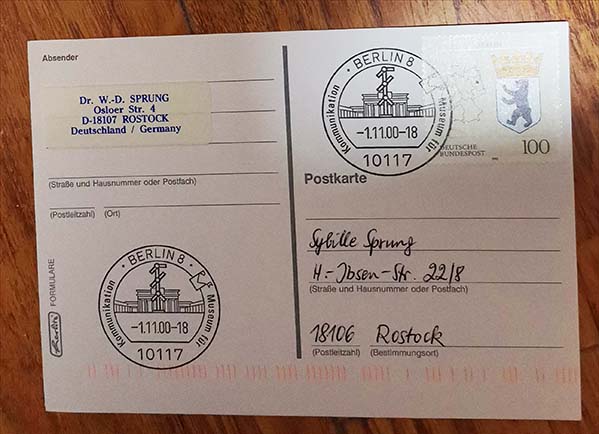 Absender
Dr. W.-D. SPRUNG
Osloer Str. 4
D-18107 ROSTOCK
Deutschland / Germany
(Straße und Hausnummer oder Postfach)
(Postleitzahl) (Ort)
FORMULARE
Herlitz
BERLIN 8
Museum für Kommunikation
-1.11.00-18
10117
BERLIN 8
Museum für Kommunikation
-1.11.00-18
10117
BERLIN
DEUTSCHE
BUNDESPOST
100
Postkarte
Sybille Sprung
H-Ibsen-Str. 22/8
(Straße und Hausnummer oder Postfach)
18106 Rostock
(Postleitzahl) (Bestimmungsort)